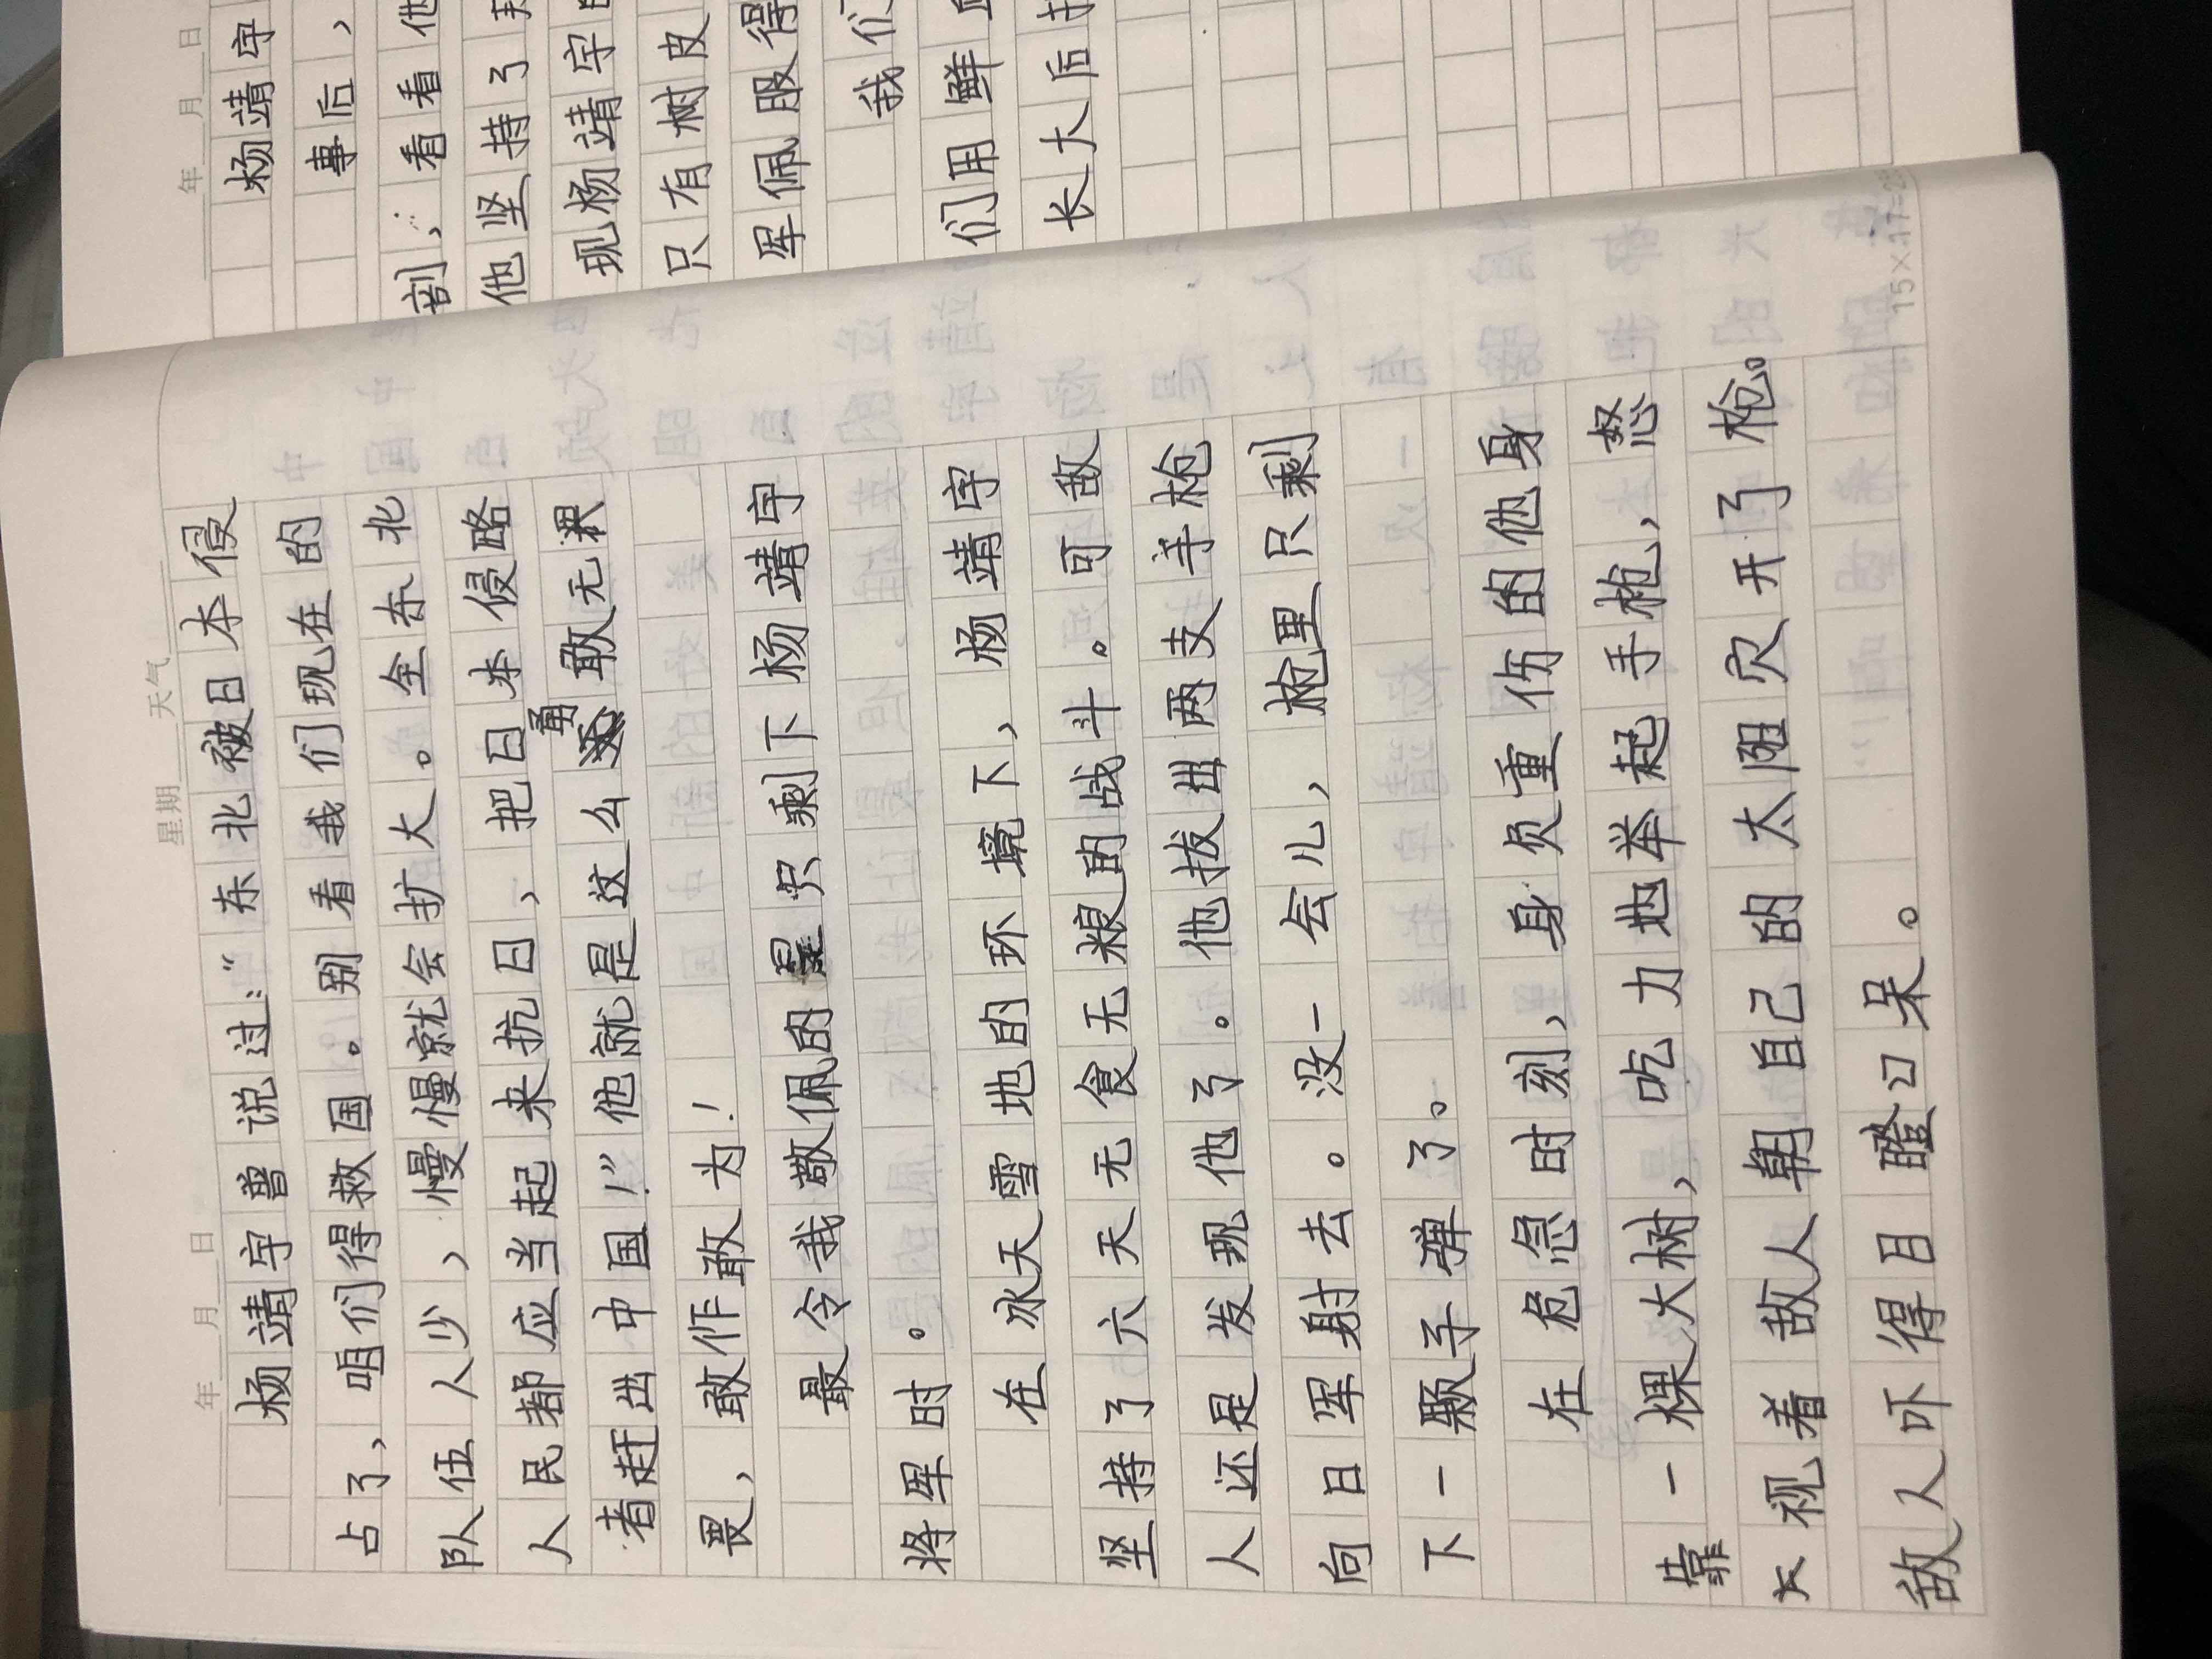 年 月 日 星期 天气
杨靖宇曾说过:“东北被日本侵
占了,咱们得救国。别看我们现在的
队伍人少,慢慢就会扩大。全东北
人民都应当起来抗日,把日本侵略
者赶出中国!”他就是这么勇敢无畏
畏,敢作敢为!
最令我敬佩的是只剩下杨靖宇
将军时。
在冰天雪地的环境下,杨靖宇
坚持了六天无食无粮的战斗。可敌
人还是发现他了。他拔出两支手枪
向日军射去。没一会儿,枪里只剩
下一颗子弹了。
在危急时刻,身负重伤的他身
靠一棵大树,吃力地举起手枪,怒
视着敌人朝自己的太阳穴开了枪。
敌人吓得目瞪口呆。
15×17=25
年 月 日
杨靖宇
事后,
剖,看看他
他坚持了
现杨靖宇
只有树皮
军佩服得
我们
们用鲜
长大后